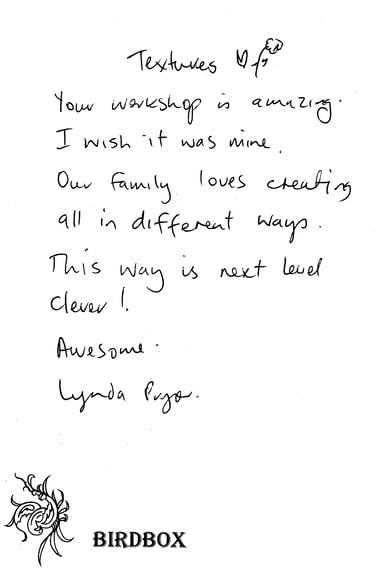 Textures
Your workshop is amazing.
I wish it was mine.
Our family loves creating
all in different ways.
This way is next level
clever!
Awesome.
Lynda Pryor.
BIRDBOX